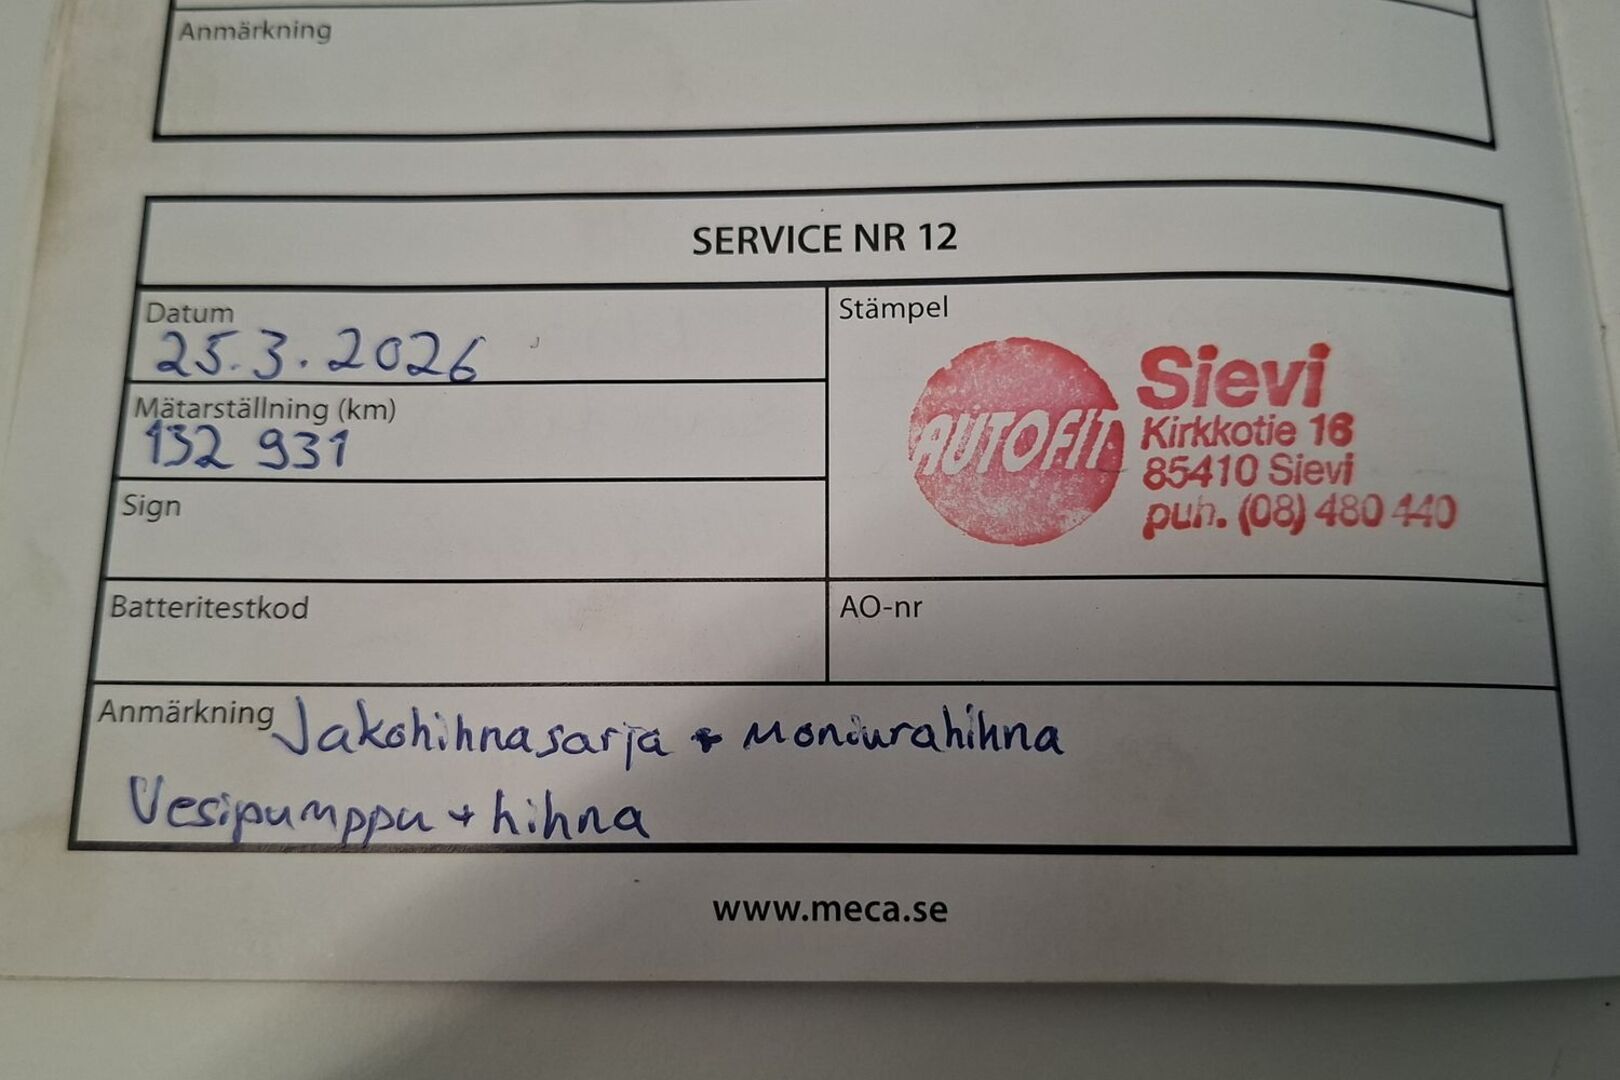 Anmärkning
SERVICE NR 12
Datum
25.3.2026
Mätarställning (km)
132 931
Sign
Batteritestkod
Stämpel
AUTOFIT
Sievi
Kirkkotie 16
85410 Sievi
puh. (08) 480 440
AO-nr
Anmärkning Jakohihnasarja + Moniurahihna
Vesipumppu + hihna
www.meca.se